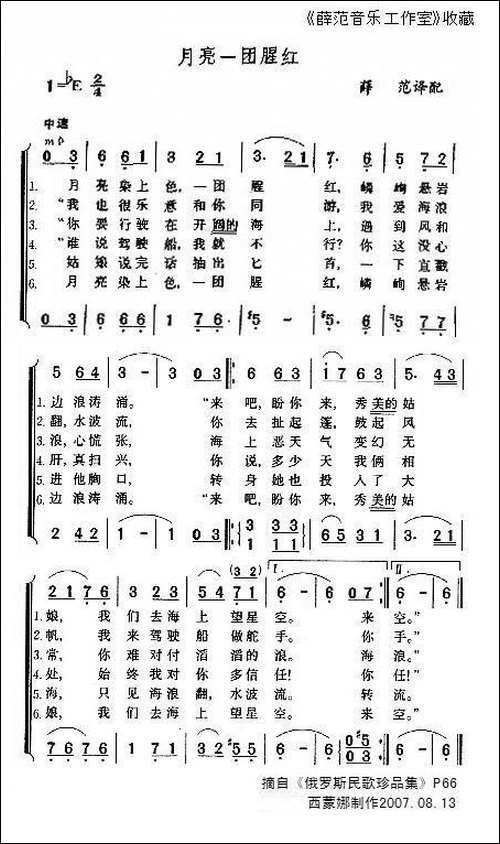 《薛范音乐工作室》收藏
月亮一团腥红
1=♭E 2/4
薛 范译配
中速
mp
0 3 6 6 1 3 21 3· 21 7· 6 5 7 2
1. 月亮染上色,一团腥红,嶙峋悬岩
2. “我也很乐意和你同游,我爱海浪
3. “你要行驶在开阔的海上,遇到风和
4. “谁说驾驶船,我就不行?你这没心
5. 姑娘说完话抽出匕首,一下直戳
6. 月亮染上色,一团腥红,嶙峋悬岩
0 3 6 6 6 1 7 6 #5 - #5· 6 ♮5 7 7
5 6 4 3 - 3 0 3 6 6 3 1 7 6 3 5· 4 3
1.边浪涛涌。 “来吧,盼你来,秀美的姑
2.翻,水波流, 你去扯起篷,鼓起风
3.浪,心慌张, 海上恶天气变幻无
4.肝,真扫兴, 你说,多少天我俩相
5.进他胸口, 转身她也投入了大
6.边浪涛涌。 “来吧,盼你来,秀美的姑
2 4 2 1 - 1 0 3 3 3 3 1 1 1 6 5 5 1 3· 2 1
(3 2)
2 1 7 6 6 7 1 3 5 4 7 1 6 - 6 0 7 6 - 6 -
I. II.
1.娘, 我们去海上望星空。 来空。”
2.帆, 我来驾驶船做舵手。 你手。”
3.常, 你难对付滔滔的浪。 海浪。”
4.处, 始终我对你多信任! 你任!”
5.海, 只见海浪翻,水波流。 转流。
6.娘, 我们去海上望星空。 来空。”
7 6 7 6 6 7 1 3 2 #5 5 6 - 6 0 #5 5 6 - 6 -
摘自《俄罗斯民歌珍品集》P66
西蒙娜制作2007.08.13